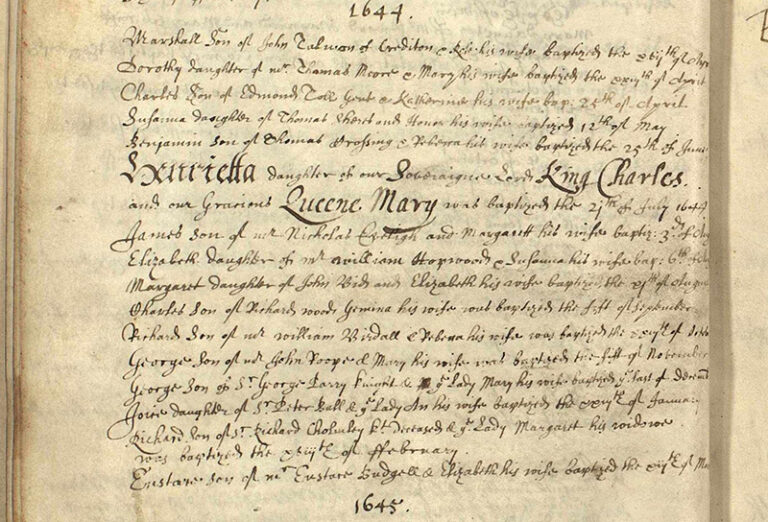 1644.
Marshall Son of John Talman of Crediton & his wife baptized the of
Dorothy daughter of mr. Thomas Moore & Mary his wife baptized the of April
Charles Son of Edmond Toll Gent & Katherine his wife bap: 25th of April
Susanna daughter of Thomas and his wife baptized 12th of May
Benjamin Son of Thomas Crossing & Rebecca his wife baptized the 25th of
Henrietta daughter of our Soveraigne Lord King Charles.
and our Gracious Queene Mary was baptized the 21th of July 1644
James Son of mr Nicholas and Margarett his wife baptiz: 3rd of
Elizabeth daughter of mr william Hopwood & Susanna his wife bap: 6th of
Margaret daughter of John and Elizabeth his wife baptized the of
Charles Son of Richard wood & his wife was baptized the fift of September
Richard Son of mr william & Rebecca his wife was baptized the of
George Son of mr John Roope & Mary his wife was baptized the fift of November
George Son of Sr. George Parry knight & ye Lady Mary his wife baptized ye last of
Joice daughter of Sr. Peter Ball & ye Lady An his wife baptized the of
Richard Son of Sr. Richard Cholmley kt deceased & ye Lady Margaret his widowe
was baptized the of ffebruary.
Eustace Son of mr Eustace Budgell & Elizabeth his wife baptized the of
1645.